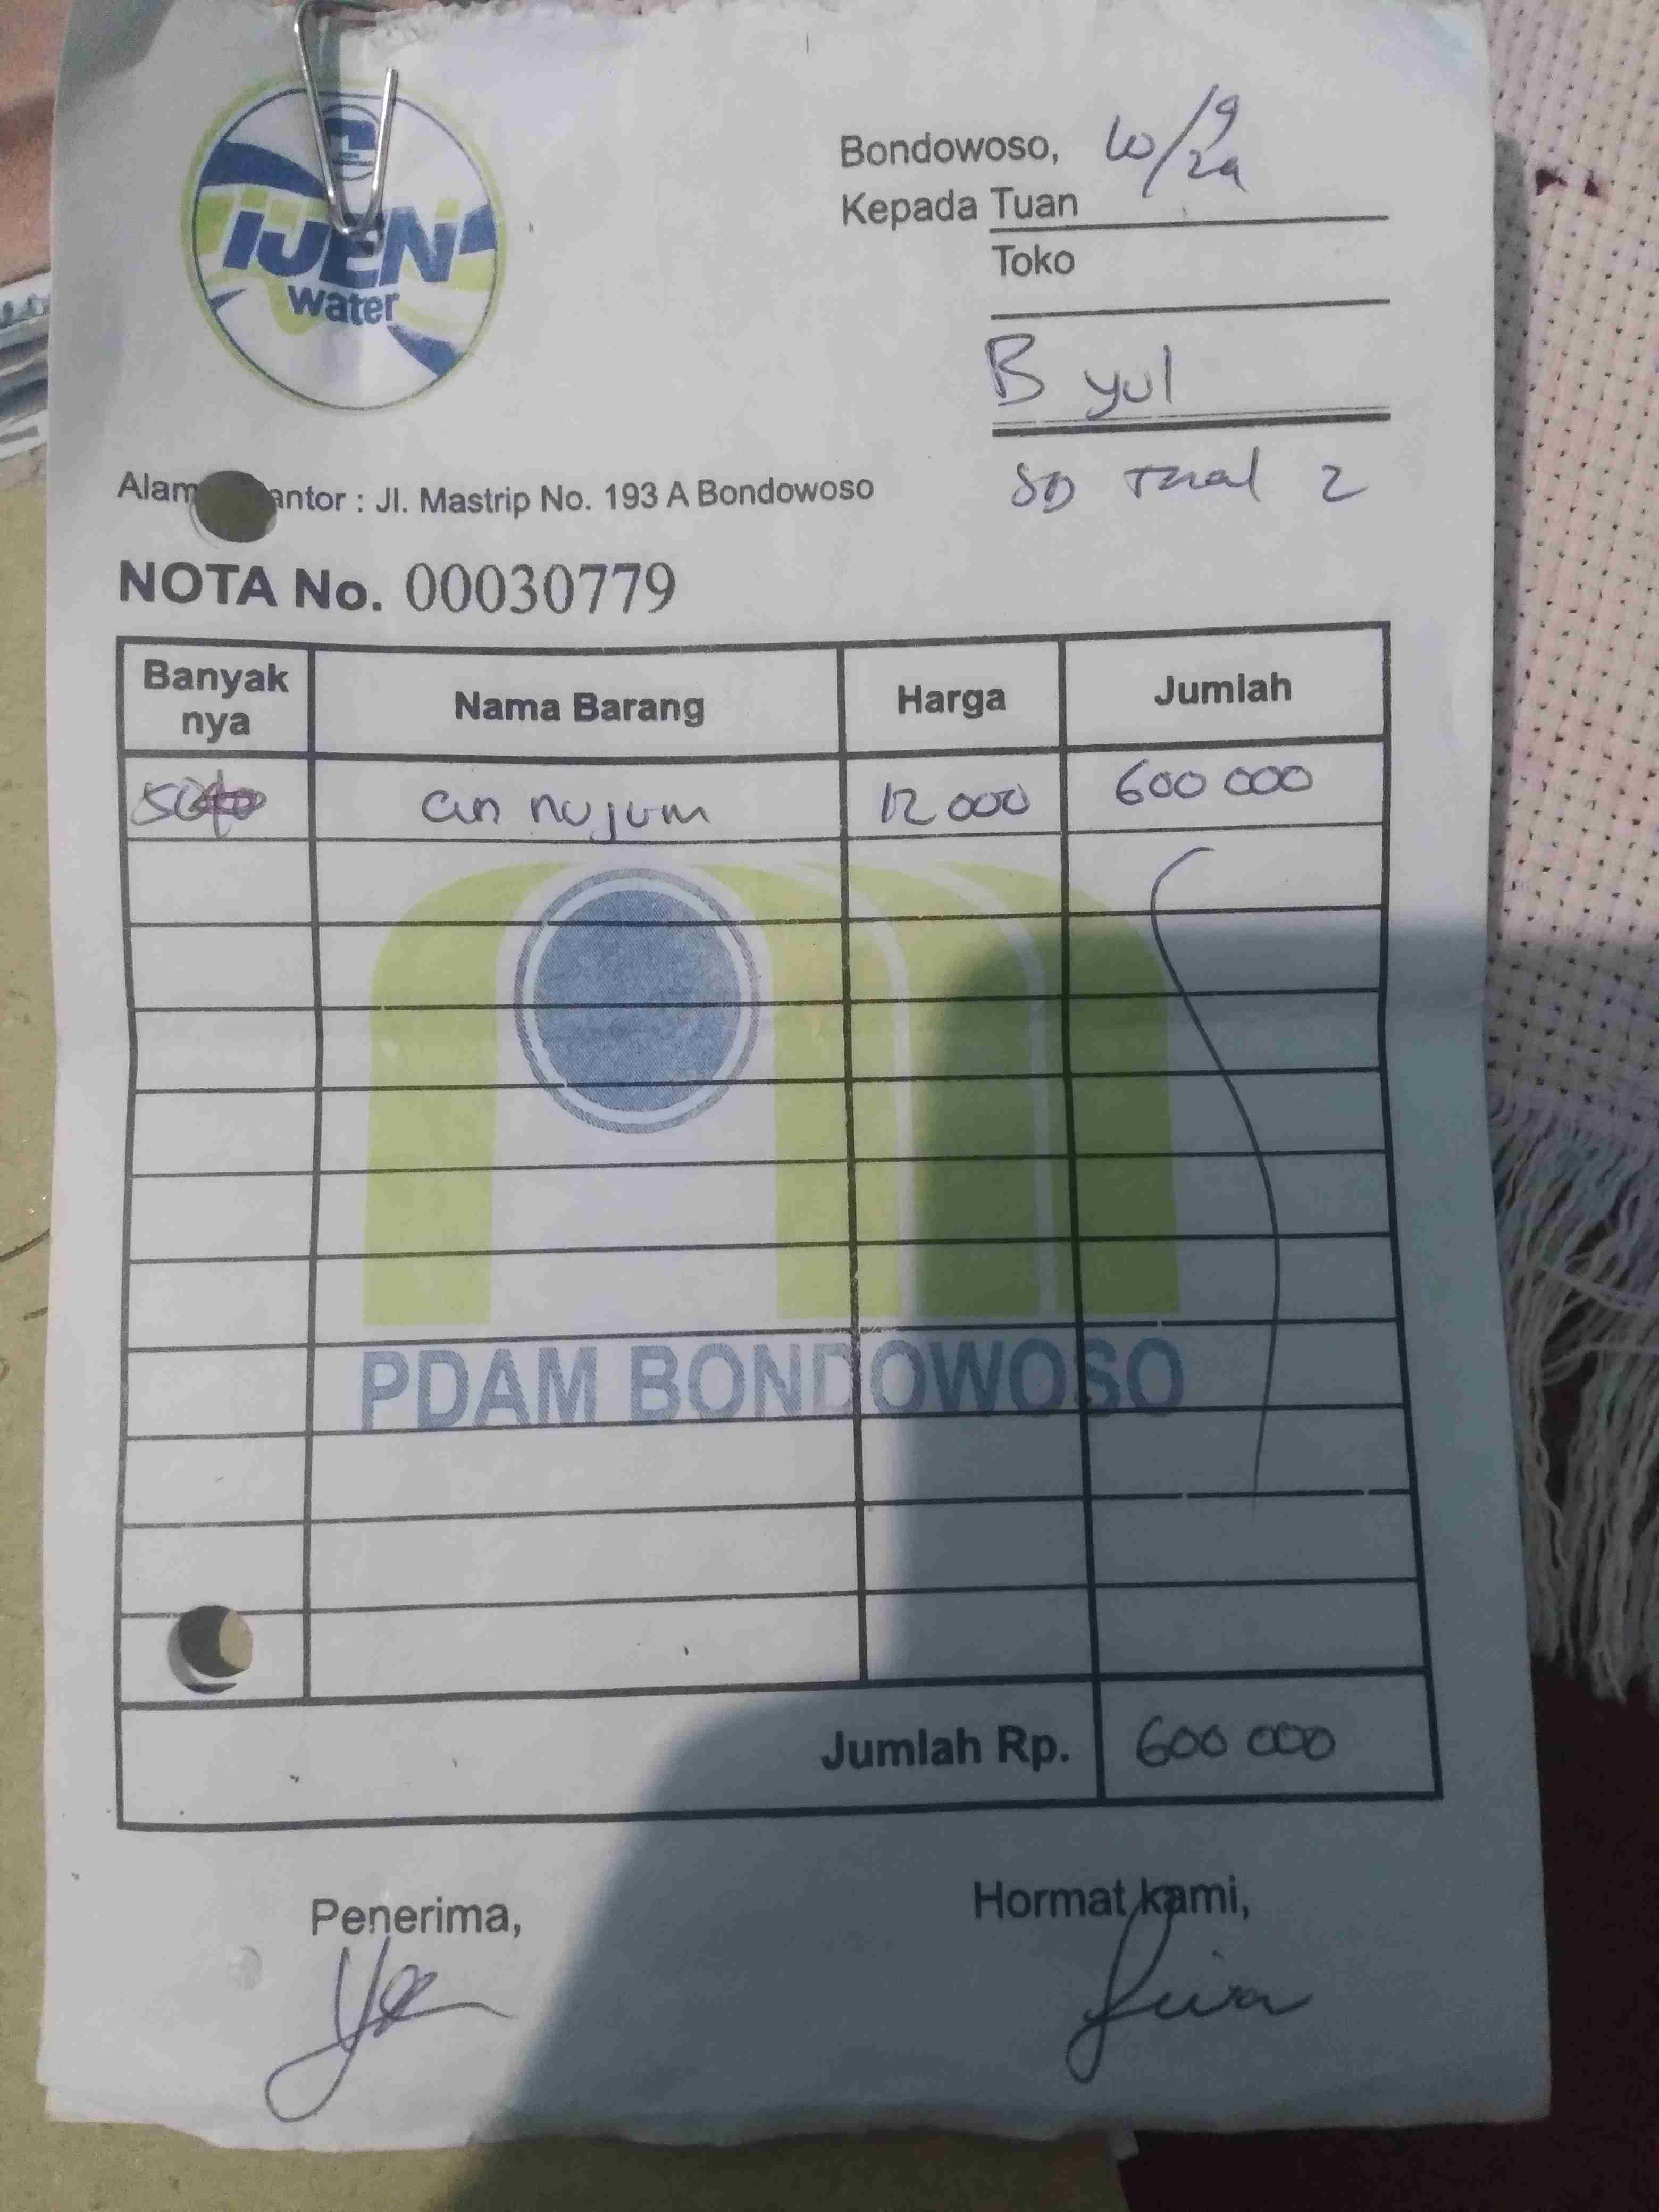 IJEN
Water
Bondowoso, 10/9 24
Kepada Tuan
Toko
B yul
SD Tual 2
Alam antor : Jl. Mastrip No. 193 A Bondowoso
NOTA No. 00030779
Banyak nya Nama Barang Harga Jumlah
50 an nujum 12 000 600 000
PDAM BONDOWOSO
Jumlah Rp. 600 000
Penerima, Hormat kami,